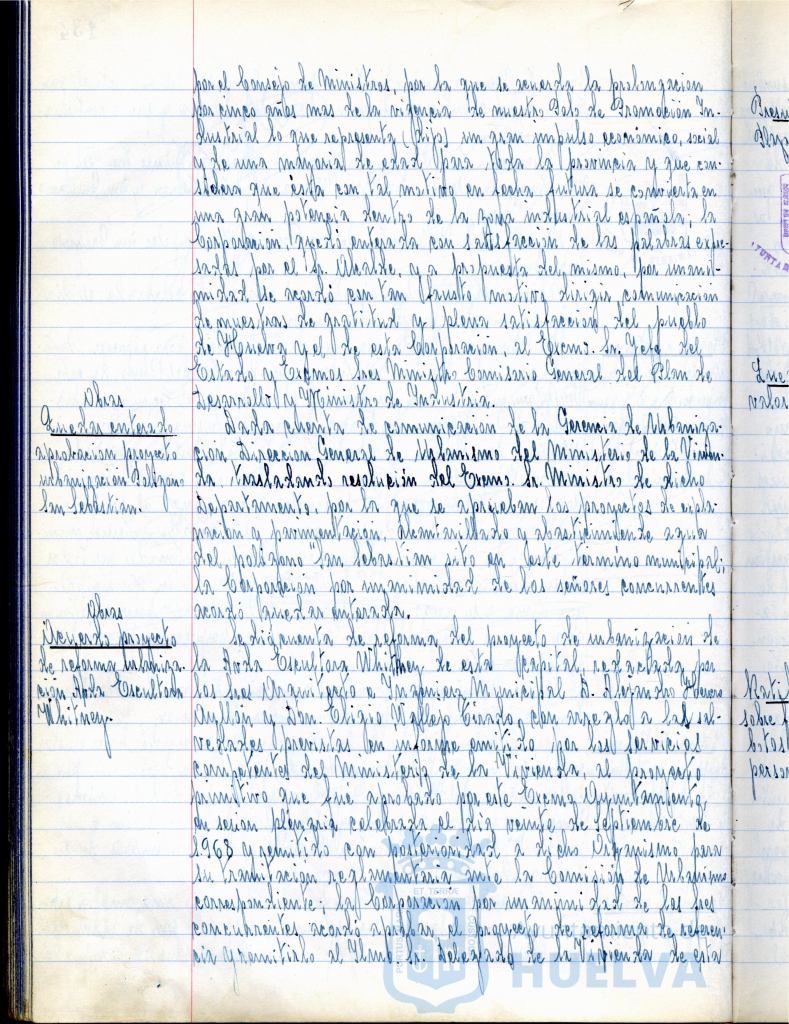 por el Consejo de Ministros, por la que se acuerda la prolongacion
por cinco años mas de la vigencia de nuestro Polo de Promoción In-
dustrial lo que representa (dijo) un gran impulso económico, social
y de una mayoria de edad para toda la provincia y que con-
sidera que ésta con tal motivo en fecha futura se convierta en
una gran potencia dentro de la zona industrial española; la
Corporación, quedó enterada con satisfacción de las palabras expre-
sadas por el Sr. Alcalde, y a propuesta del mismo, por unani-
midad se acordó con tan fausto motivo dirigir comunicación
de muestras de gratitud y plena satisfacción del pueblo
de Huelva y el de esta Corporación, al Excmo. Sr. Jefe del
Estado y Excmos Sres Ministro Comisario General del Plan de
Desarrollo y Ministro de Industria.
Obras
Quedar enterado
aprobacion proyecto
urbanizacion Poligono
San Sebastian.
Dada cuenta de comunicación de la Gerencia de Urbaniza-
cion Direccion General de Urbanismo del Ministerio de la Vivien-
da, trasladando resolución del Excmo. Sr. Ministro de dicho
Departamento, por la que se aprueban los proyectos de expla-
nación y pavimentación, alcantarillado y abastecimiento de agua
del poligono "San Sebastian sito en este termino municipal;
la Corporación por unanimidad de los señores concurrentes
acordó quedar enterada.
Obras
Acuerdo proyecto
de reforma urbaniza-
ción Avda Escultora
Whitney.
Se dió cuenta de reforma del proyecto de urbanización de
la Avda Escultora Whitney de esta Capital, redactada por
los Sres Arquitecto e Ingeniero Municipal D. Alejandro Herrero
Ayllón y Don. Eligio Vallejo Tirado, con arreglo a las sal-
vedades previstas en informe emitido por los Servicios
competentes del Ministerio de la Vivienda, al proyecto
primitivo que fué aprobado por este Excmo Ayuntamiento,
en sesion plenaria celebrada el dia veinte de Septiembre de
1968 y remitido con posterioridad a dicho Organismo para
su tramitación reglamentaria ante la Comisión de Urbanismo
correspondiente; la Corporación por unanimidad de los Sres
concurrentes acordó aprobar el proyecto de reforma de referen-
cia y remitirlo al Ilmo. Sr. Delegado de la Vivienda de esta
HUELVA